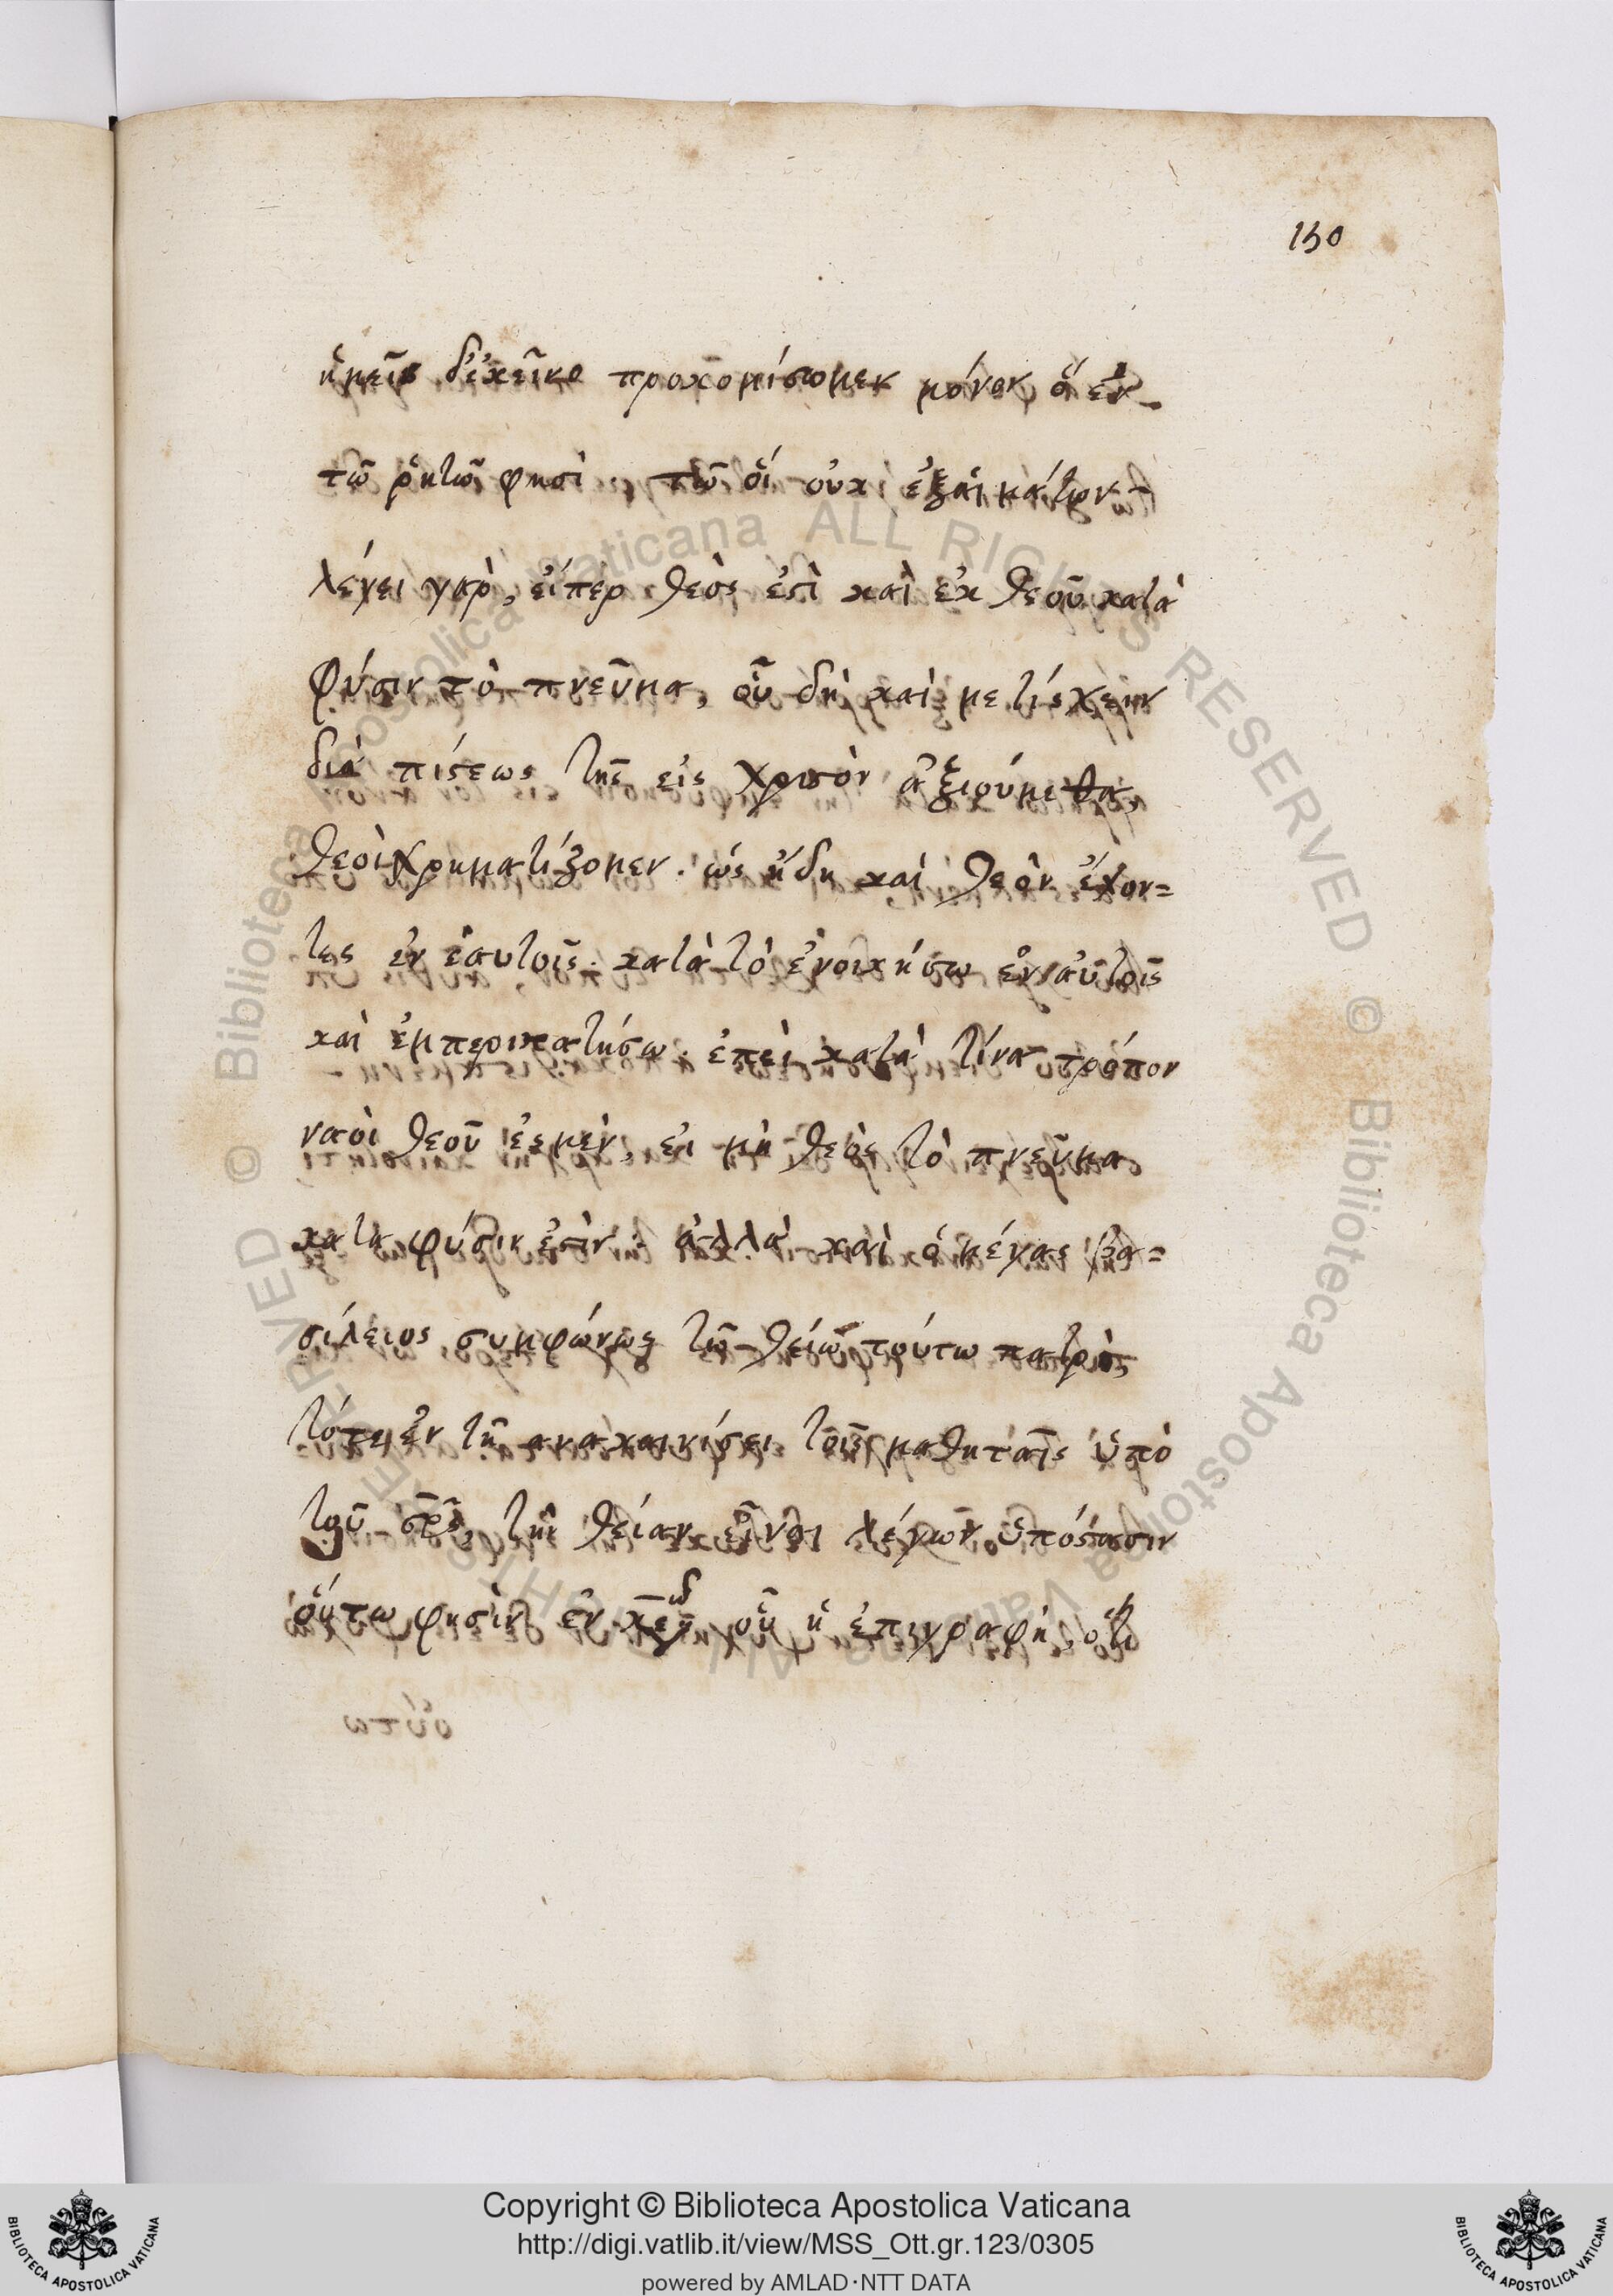 150
ἡμεῖς δ' ἐκεῖνο προκομίσωμεν μόνον ὃ ἐν
τῶ ῥητῶ φησὶ, τῶ οὗ οὐκ ἐξ αἱμάτων
λέγει γὰρ, εἴπερ θεός ἐστὶ καὶ ἐκ θεοῦ κατὰ
φύσιν τὸ πνεῦμα, οὗ δὴ καὶ μετίσχειν
διὰ πίστεως τῆς εἰς χριστὸν ἀξιούμεθα,
θεοὶ χρηματίζομεν. ὡς ἤδη καὶ θεὸν ἔχον=
τες ἐν ἑαυτοῖς. κατὰ τὸ ἐνοικήσω ἐν αὐτοῖς
καὶ ἐμπεριπατήσω. ἐπεὶ κατὰ τίνα τρόπον
ναοὶ θεοῦ ἐσμὲν, εἰ μὴ θεὸς τὸ πνεῦμα
κατὰ φύσιν ἐστὶν. ἀλλὰ καὶ ὁ μέγας βα=
σίλειος συμφώνως τῶ θείω τούτω πατρὸς
τότε ἐν τῆ ανακαινίσει τοῖς μαθηταῖς ὑπὸ
τοῦ σρς, τὴν θείαν εἶναι λέγων ὑπόστασιν
οὕτω φησὶν ἐν κεδ οὗ ἡ ἐπιγραφὴ, ὅτι
οὕτω
Copyright © Biblioteca Apostolica Vaticana
http://digi.vatlib.it/view/MSS_Ott.gr.123/0305
powered by AMLAD·NTT DATA
BIBLIOTECA APOSTOLICA VATICANA
BIBLIOTECA APOSTOLICA VATICANA
© Biblioteca Apostolica Vaticana ALL RIGHTS RESERVED © Biblioteca Apostolica Vaticana ALL RIGHTS RESERVED